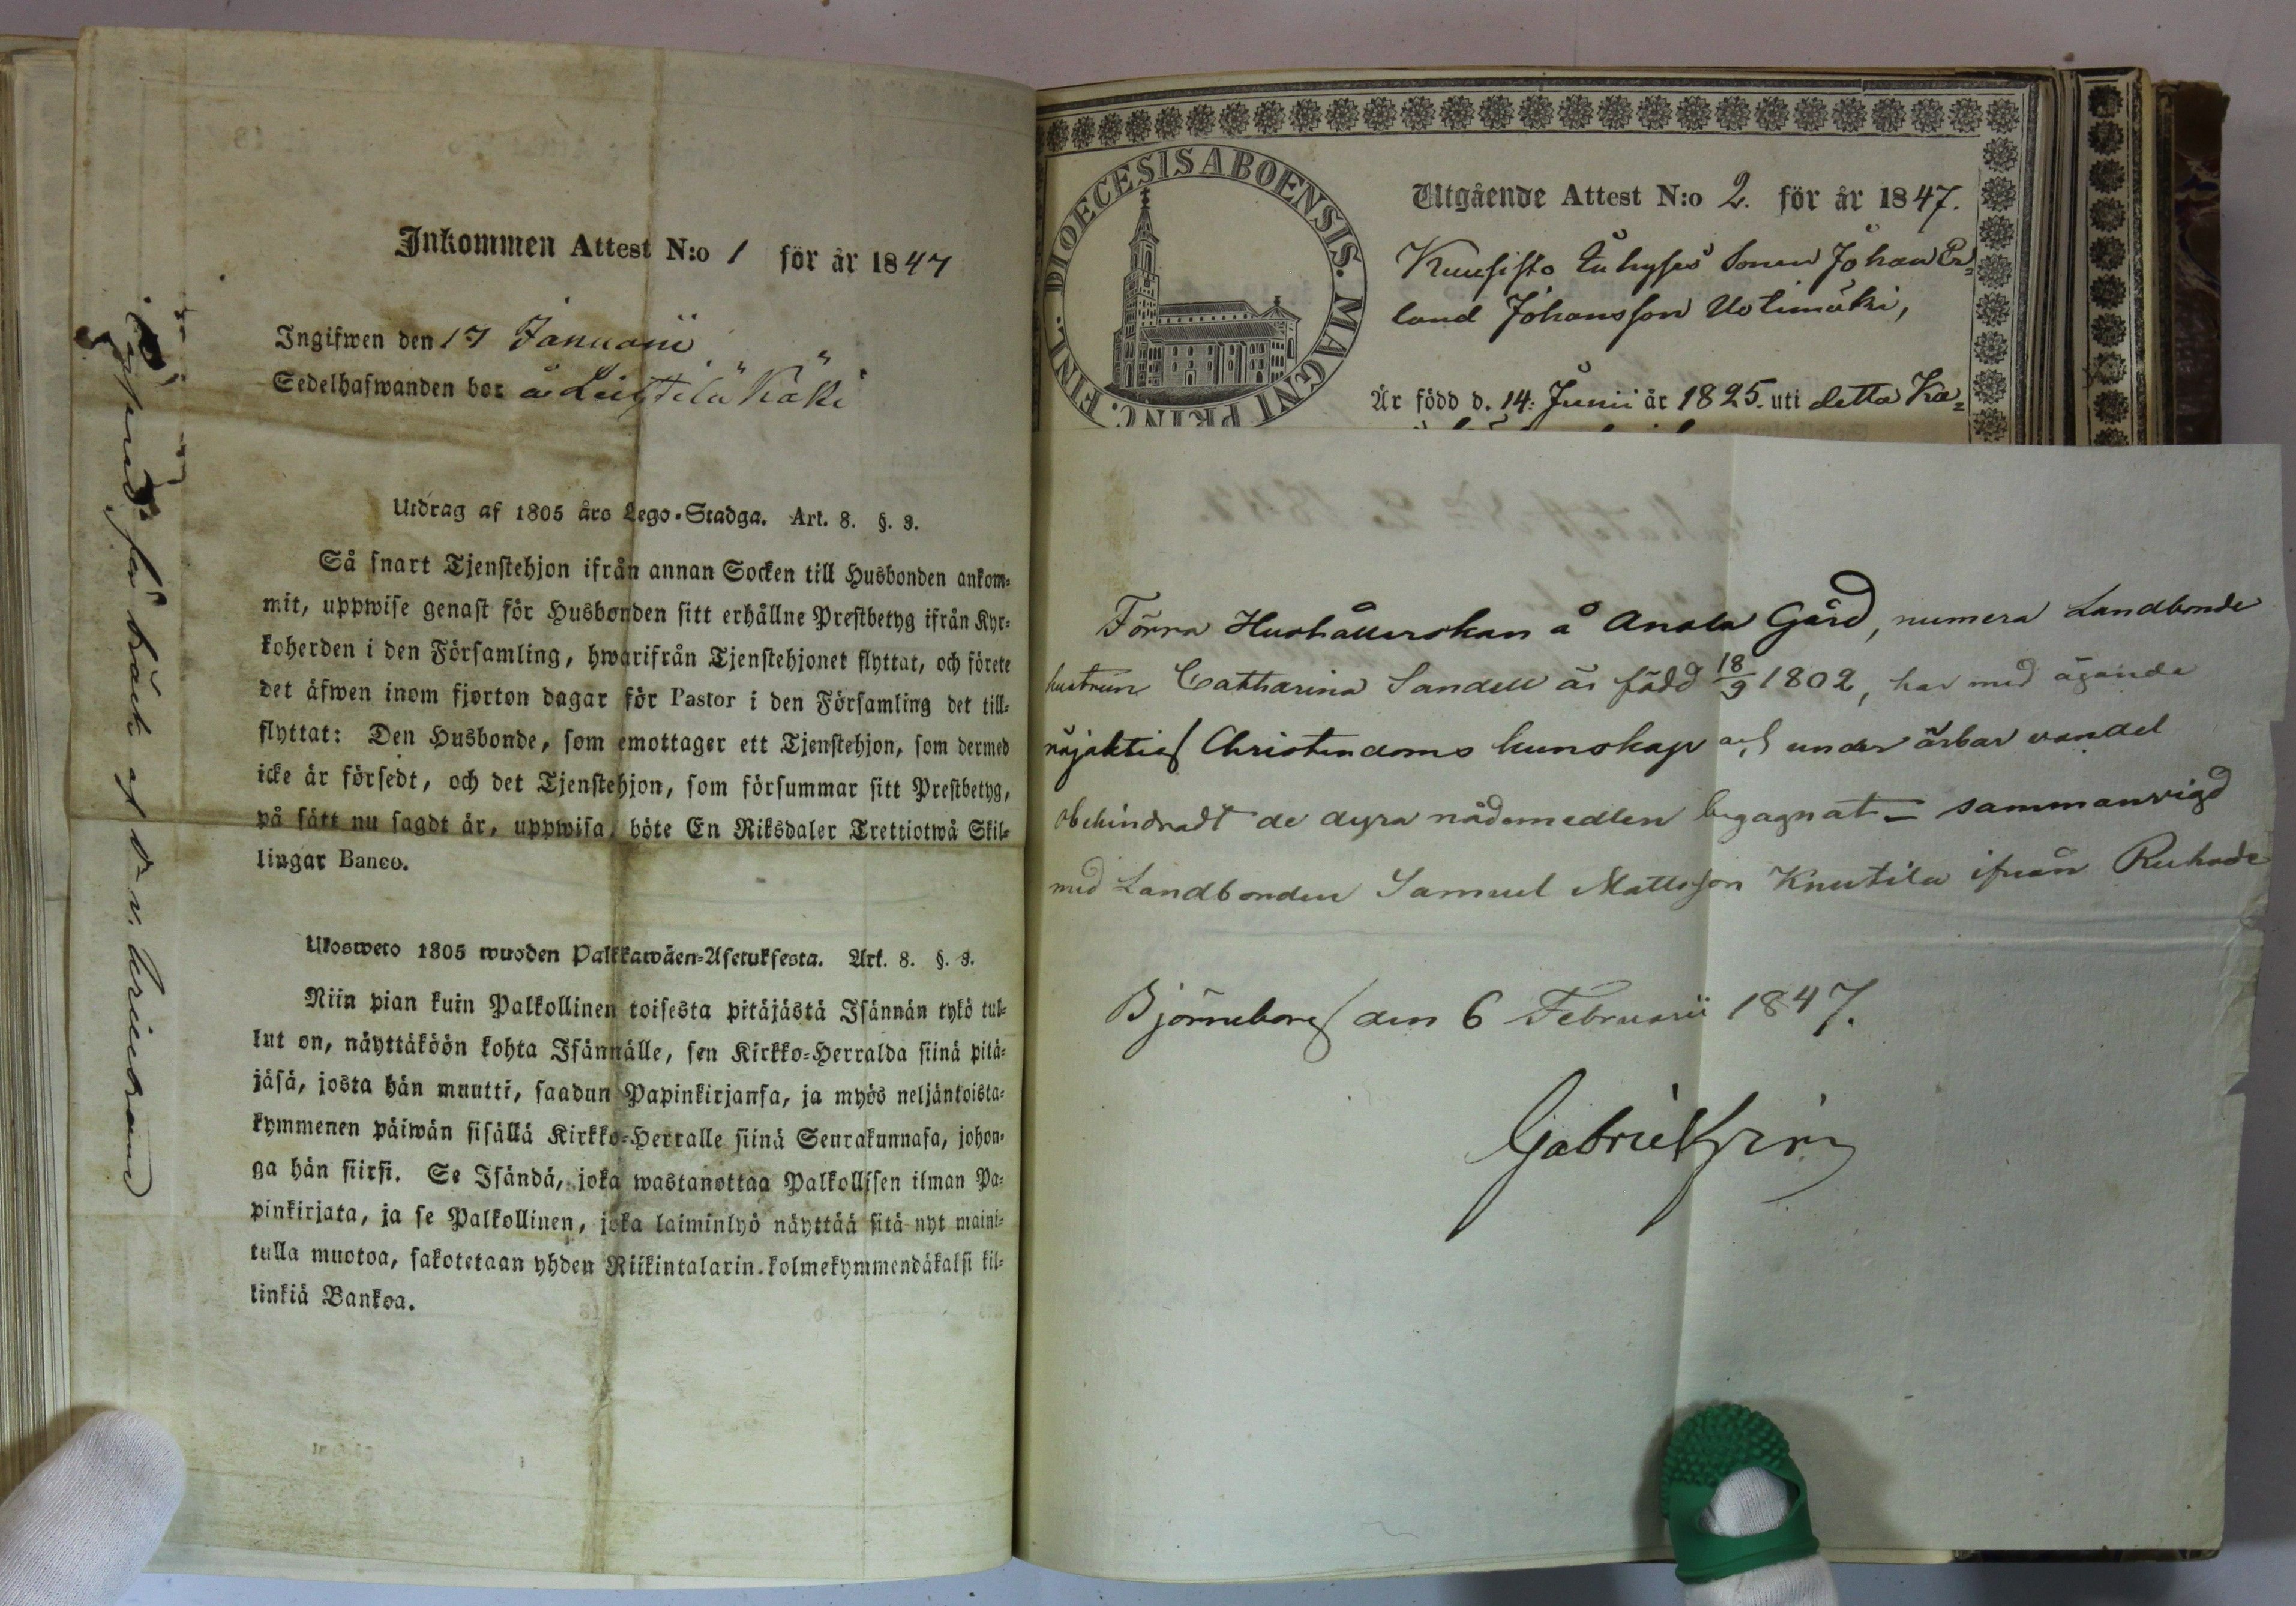 Inkommen Attest N:o 1 för år 1847
Ingifwen den 17 Januarii
Sedelhafwanden bor å Leistilä Käki
Utdrag af 1805 års Lego-Stadga. Art. 8. §. 3.
Så snart Tjenstehjon ifrån annan Socken till Husbonden ankom-
mit, uppwise genast för Husbonden sitt erhållne Prestbetyg ifrån Kyr-
koherden i den Församling, hwarifrån Tjenstehjonet flyttat, och förete
det äfwen inom fjorton dagar för Pastor i den Församling det till-
flyttat: Den Husbonde, som emottager ett Tjenstehjon, som dermed
icke är försedt, och det Tjenstehjon, som försummar sitt Prestbetyg,
på sätt nu sagdt är, uppwisa, böte En Riksdaler Trettiotwå Skil-
lingar Banco.
Ulosweto 1805 wuoden Palkkawäen-Asetuksesta. Art. 8. §. 3.
Niin pian kuin Palkollinen toisesta pitäjästä Isännän tykö tul-
lut on, näyttäköön kohta Isännälle, sen Kirkko-Herralda siinä pitä-
jäsä, josta hän muutti, saadun Papinkirjansa, ja myös neljäntoista-
kymmenen päiwän sisällä Kirkko-Herralle siinä Seurakunnasa, johon-
ga hän siirsi. Se Isändä, joka wastanottaa Palkollisen ilman Pa-
pinkirjata, ja se Palkollinen, joka laiminlyö näyttää sitä nyt maini-
tulla muotoa, sakotetaan yhden Riikintalarin kolmekymmendäkaksi kil-
linkiä Bankoa.
DIOECESIS ABOENSIS. MAGNI PRINC. FINL.
Utgående Attest N:o 2. för år 1847.
Kuusisto Sonen Johan Er-
land Johansson Uotimäki,
Är född d. 14: Junii år 1825. uti detta Ka-
Förra Hushållerskan å Anola Gård, numera Landbonde
hustrun Catharina Sandell är född 18/9 1802, har med ägande
nöjaktig Christendoms kunskap och under ärbar vandel
obehindradt de dyra nådemedlen begagnat – sammanvigd
med Landbonden Samuel Mattsson Knutila ifrån
Björneborg den 6 Februarii 1847.
Gabriel